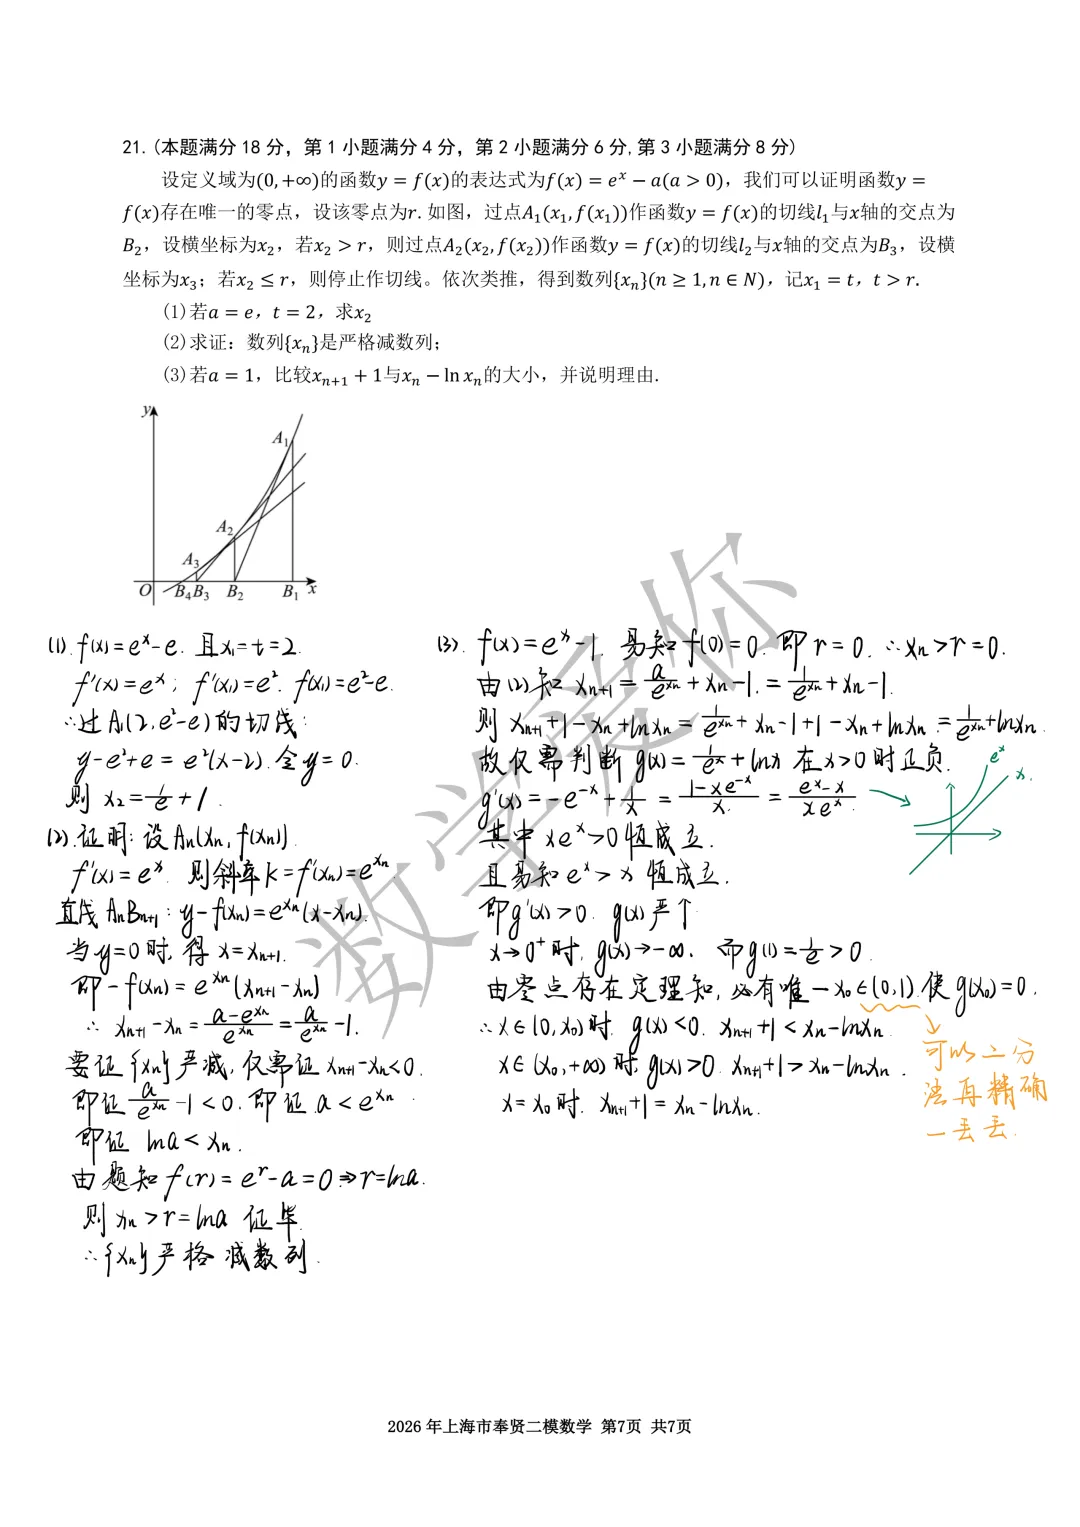 21.(本题满分 18 分，第 1 小题满分 4 分，第 2 小题满分 6 分,第 3 小题满分 8 分)
设定义域为(0,+∞)的函数y = f(x)的表达式为f(x) = eˣ − a(a > 0)，我们可以证明函数y =
f(x)存在唯一的零点，设该零点为r. 如图，过点A₁(x₁,f(x₁))作函数y = f(x)的切线l₁与x轴的交点为
B₂，设横坐标为x₂，若x₂ > r，则过点A₂(x₂,f(x₂))作函数y = f(x)的切线l₂与x轴的交点为B₃，设横
坐标为x₃；若x₂ ≤ r，则停止作切线。依次类推，得到数列{xₙ}(n ≥ 1,n ∈ N)，记x₁ = t，t > r.
(1)若a = e，t = 2，求x₂
(2)求证：数列{xₙ}是严格减数列；
(3)若a = 1，比较xₙ₊₁ + 1与xₙ − ln xₙ的大小，并说明理由.
y
A₁
A₂
A₃
O B₄ B₃ B₂ B₁ x
(1). f(x)=eˣ-e. 且x₁=t=2.
f'(x)=eˣ; f'(x₁)=e². f(x₁)=e²-e.
∴过A₁(2,e²-e)的切线:
y-e²+e=e²(x-2).令y=0.
则 x₂=1/e+1.
(2).证明:设Aₙ(xₙ,f(xₙ)).
f'(x)=eˣ. 则斜率k=f'(xₙ)=e^xₙ
直线AₙBₙ₊₁: y-f(xₙ)=e^xₙ(x-xₙ).
当y=0时,得x=xₙ₊₁.
即-f(xₙ)=e^xₙ(xₙ₊₁-xₙ)
∴ xₙ₊₁-xₙ=(a-e^xₙ)/e^xₙ=a/e^xₙ-1.
要证{xₙ}严减,仅需证xₙ₊₁-xₙ<0.
即证 a/e^xₙ-1<0.即证 a<e^xₙ
即证 lna<xₙ.
由题知f(r)=eʳ-a=0⇒r=lna.
则xₙ>r=lna 证毕.
∴{xₙ}严格减数列.
(3). f(x)=eˣ-1. 易知f(0)=0. 即r=0. ∴xₙ>r=0.
由(2)知 xₙ₊₁=a/e^xₙ+xₙ-1.=1/e^xₙ+xₙ-1.
则 xₙ₊₁+1-xₙ+lnxₙ=1/e^xₙ+xₙ-1+1-xₙ+lnxₙ=1/e^xₙ+lnxₙ.
故仅需判断g(x)=1/eˣ+lnx在x>0时正负.
g'(x)=-e⁻ˣ+1/x=(1-xe⁻ˣ)/x=(eˣ-x)/(xeˣ).
eˣ
x.
其中xeˣ>0恒成立.
且易知eˣ>x恒成立.
即g'(x)>0. g(x)严↑
x→0⁺时,g(x)→-∞. 而g(1)=1/e>0.
由零点存在定理知,必有唯一x₀∈(0,1).使g(x₀)=0.
∴x∈(0,x₀)时.g(x)<0. xₙ₊₁+1<xₙ-lnxₙ.
x∈(x₀,+∞)时.g(x)>0. xₙ₊₁+1>xₙ-lnxₙ.
x=x₀时. xₙ₊₁+1=xₙ-lnxₙ.
可以二分
法再精确
一丢丢.
数学爱你
2026 年上海市奉贤二模数学 第7页 共7页